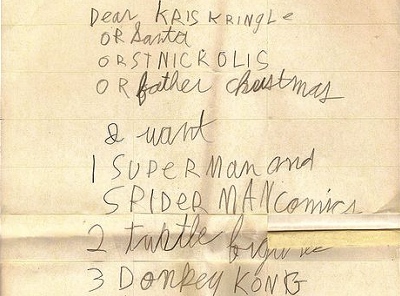 Dear KRIS KRINGLe
OR Santa
OR ST NICKOLIS
OR father christmas
I want
1 SUPERMan and
SPIDER MAN comics
2 turtle figure
3 DONKEY KONG